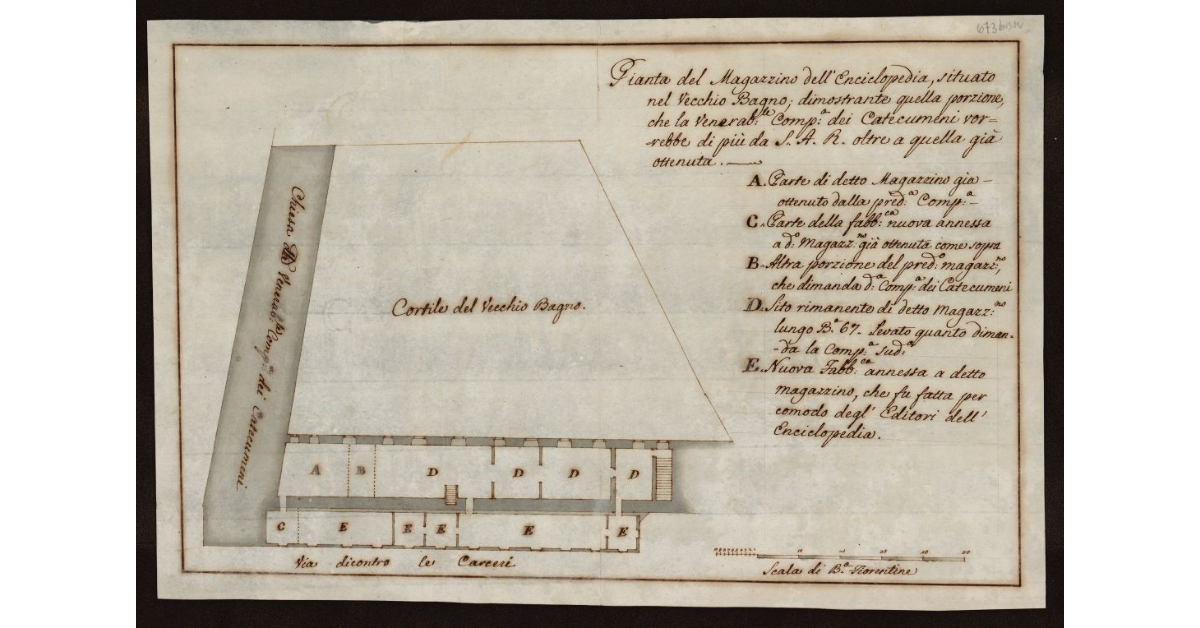 Pianta del Magazzino dell'Enciclopedia, situato
nel Vecchio Bagno; dimostrante quella porzione,
che la Venerab:le Comp:a dei Catecumeni vor=
=rebbe di più da S. A. R. oltre a quella già
ottenuta.
A. Parte di detto Magazzino già
ottenuto dalla pred:a Comp:a
C. Parte della fabb:ca nuova annessa
a d:o Magazz:no già ottenuta come sopra
B. Altra porzione del pred:o magazz:no,
che dimanda d:a Comp:a dei Catecumeni
D. Sito rimanento di detto Magazz:no
lungo B.a 67. levato quanto diman-
-da la Comp:a sud:a
E. Nuova Fabb:ca annessa a detto
magazzino, che fu fatta per
comodo degl' Editori dell'
Enciclopedia.
Chiesa Venerab:le Comp:a dei Catecumeni
Cortile del Vecchio Bagno.
A B D D D D
C E E E E E
Via dicontro le Carceri
10 20 30 40 50
Scala di B.a Fiorentine